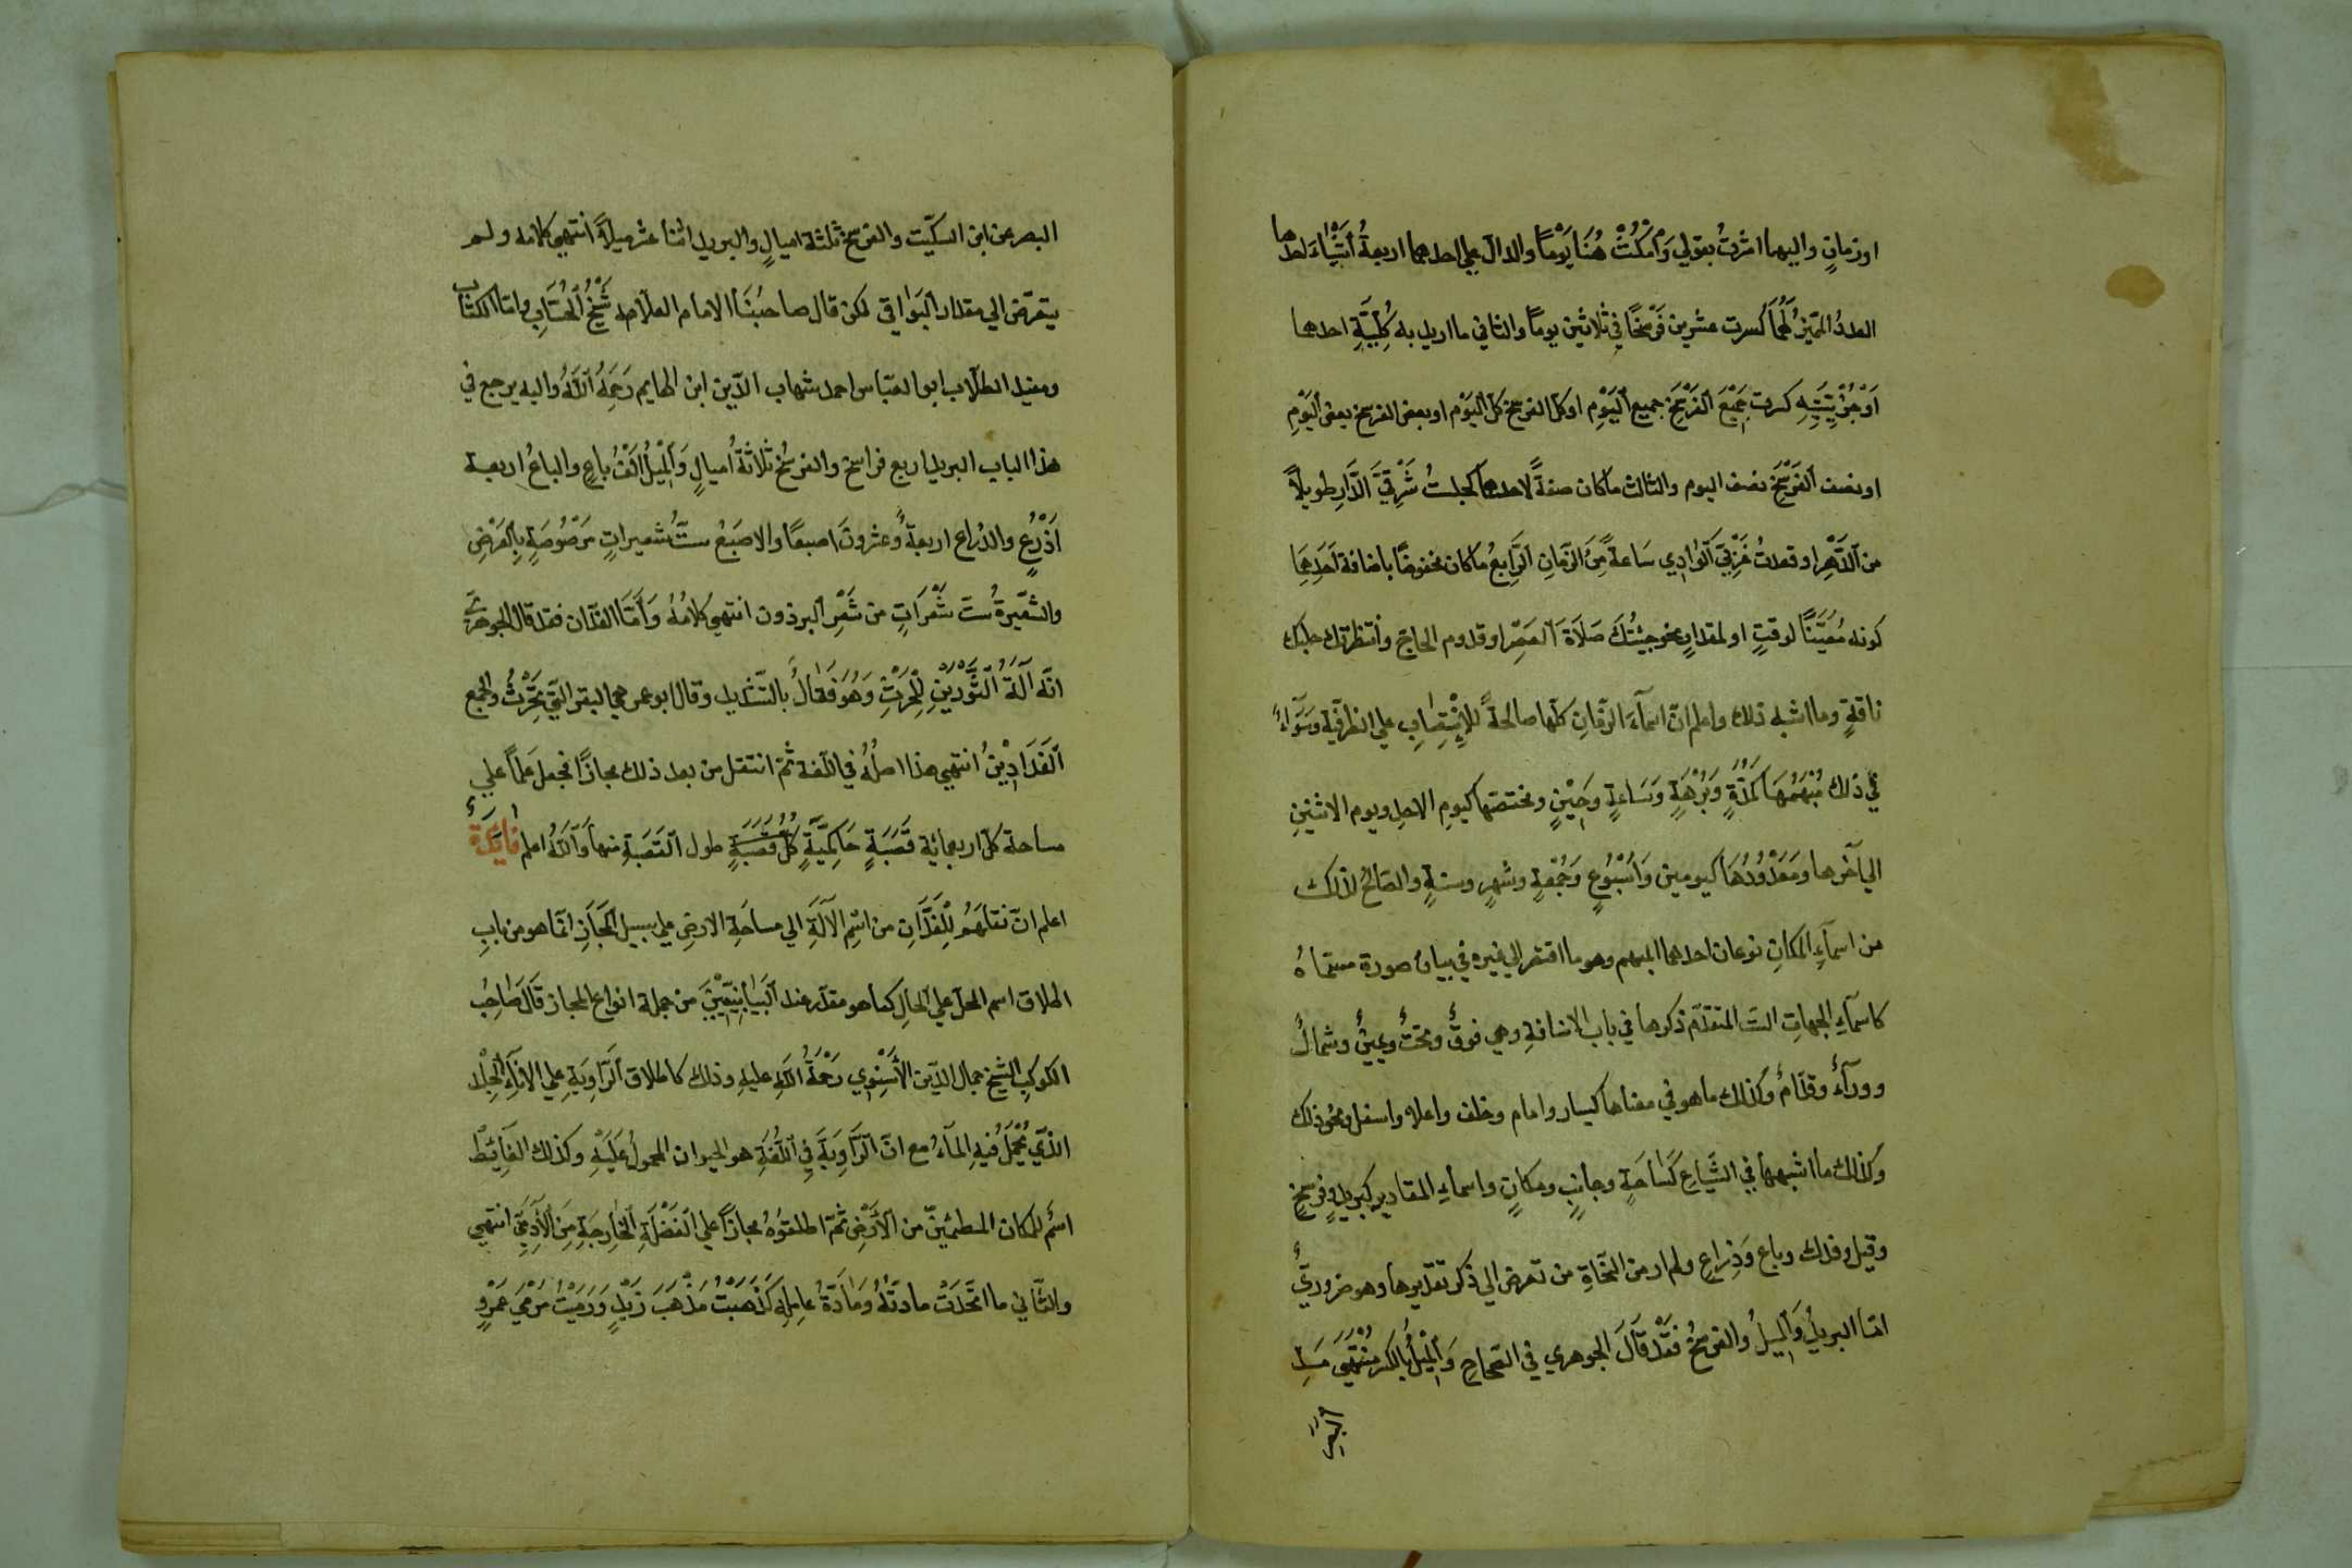 او زمانٍ واليهما اشرتُ بقولي وَٱمْكُثْ هُنَا يَوْمًا والدالّ علي احدهما اربعةُ أَشْيَآءَ احدها
العددُ المميّزُ لَهُمَا كسرت عشرين فَرْسَخًا في ثلاثين يومًا والثاني ما اريد به كُلِّيَّةِ احدهما
اَوْ جُزْئِيَّتِهِ كسرت جَمِيْعَ ٱلفَرْسَخِ جميع ٱليَوْمِ او كلّ الفرسخ كلّ ٱليَوْم او بعض الفرسخ بعض ٱليَوْمِ
او نصف ٱلفَرْسَخِ نصف اليوم والثالث ما كان صفةً لاحدهما كجلستُ شَرْقِيَّ الدَّارِ طويلاً
من ٱلدَّهْرِ او قعدتُ غَرْبِيَّ ٱلوَادِي سَاعةً مِّنَ الزّمانِ ٱلرَّابِعُ ما كان مخفوضًا باضافة اَحَدِهِمَا
كونه مُعَيَّنًا لوقتٍ او لمقدارٍ نحو جئتُكَ صَلَاةَ ٱلعَصْرِ او قدوم الحاجّ وانتظرتك حلبَ
ناقةٍ وما اشبه ذلك واعلم انّ اسمآءَ الزّمانِ كلّها صالحةً لِلاِنْتِصَابِ علي الظرفيّة وَسَوَآءً
في ذلك مُبْهَمُهَا كَمُدَّةٍ وَبُرْهَةٍ وَسَاعةٍ وَحِيْنٍ ومختصّها كيومِ الاحدِ ويوم الاثنينِ
الي آخرها وَمَعْدُوْدُهَا كيومين وَاُسْبُوْعٍ وَجُمْعَةٍ وشهرٍ وسنةٍ والصّالحُ لذلك
من اسمآءِ المكانِ نوعان احدهما المبهم وهو ما افتقر الي غيره في بيان صورة مسمّاهُ
كاسمآءِ الجهاتِ الستّ المتقدّم ذكرها في باب الاضافةِ وهي فوقٌ وتحتٌ ويمينٌ وشمالٌ
وورآءٌ وقدّامٌ وكذلك ما هو في معناها كيسار وامام وخلف واعلا واسفل ونحو ذلك
وكذلك ما اشبهها في الشِّيَاعِ كَسَاحَةٍ وجانبٍ ومكانٍ واسماءِ المقاديرِ كبريدٍ وفرسخٍ
وقيل وفدان وباع وَذِرَاعٍ ولم ار من النّحاةِ من تعرض الي ذكر تقديرها وهو ضروديٌّ
امّا البريدُ وَالمِيلُ والفرسخُ فَقَدْ قَالَ الجوهري في الصّحاح وَالمِيْلُ بالكسر مُنْتَهَيٰ مَدِ
البَصَرِ
البصر عن ابن السكّيت والفرسخ ثلثة اميالٍ والبريد اثنا عشر ميلاً انتهي كلامه ولم
يتعرّض الي مقدار ٱلبَوَاقي لكن قال صاحبُنَا الامام العلّامه شَيْخُ ٱلحُسَّابِ وامّا الكتّاب
ومفيد الطلّاب ابو العبّاس احمد شهاب الدّين ابن الهايم رَحِمَهُ ٱللّٰهُ واليه يرجع في
هذا الباب البريد اربع فراسخ والفرسخُ ثلاثةُ اميالٍ وَٱلمِيْلُ اَلْفُ باعٍ والباعُ اربعة
اَذْرُعٍ والذراع اربعةٌ وعشرونَ اصبعًا والاصبَعُ ستُّ شعيراتٍ مَرْصُوصَةٍ بِٱلعَرْضِ
والشعيرةُ ستّ شَعَرَاتٍ من شَعْرِ ٱلبرذون انتهي كلامُهُ وَاَمَّا الفدّان فقد قال الجوهريُّ
انّه آلَةُ الثَّوْرَيْنِ لِلْحَرْثِ وَهُوَ فَعَّالٌ بالتّشديد وقال ابو عمر هي البقر الّتي تَحْرُثُ والجمع
ٱلفَدَادِيْنُ انتهي هذا اصلُهُ في اللّغة ثمّ انتقل من بعد ذلك مجازًا فجعل عَلَمًا علي
مساحة كلّ اربعمائة قَصَبَةٍ حَاكِمِيَّةٍ كلّ قَصَبَةٍ طول ٱلقَصَبَةِ منها وَٱللّٰهُ اعلم فَائِدَةٌ
اعلم انّ نقلَهُمُ لِلْفَدَّانِ من اسْمِ الآلَةِ الي مساحَةِ الارضِ علي سبيل ٱلمَجَازِ انّما هو من بابِ
اطلاق اسم المحلّ علي ٱلحَالِ كما هو مقدّر عند ٱلبَيَانِيِّيْنَ من جملة انواع المجاز قَالَ صَاحِبُ
الكوكبِ الشيخ جمال الدّين الأَسْنَوِي رَحْمَةُ اللّٰهِ عليهِ وذلك كاطلاق ٱلرَّاوِيَةِ علي الانآءِ ٱلجِلْد
الذّي يُحْمَلُ فيهِ المآءُ مع انّ ٱلرّاوِيَةَ فِي ٱللُّغَةِ هو الحيوان المحمولُ عَلَيْهِ وكذلك الغَآئِطُ
اسمٌ للمكان المطمئنّ من الأَرْضِ ثمّ اطلقوُهُ مجازاً علي ٱلفَضْلَةِ ٱلخَارِجَةِ مِنَ ٱلآدَمِيِّ انتهي
والثّاني ما اتّحَدَتْ مادتُهُ وَمَادَّةُ عامِلِهِ كَذَهَبْتُ مَذْهَبَ زَيْدٍ وَرَمَيْتُ مَرْمَيٰ عَمْرٍو